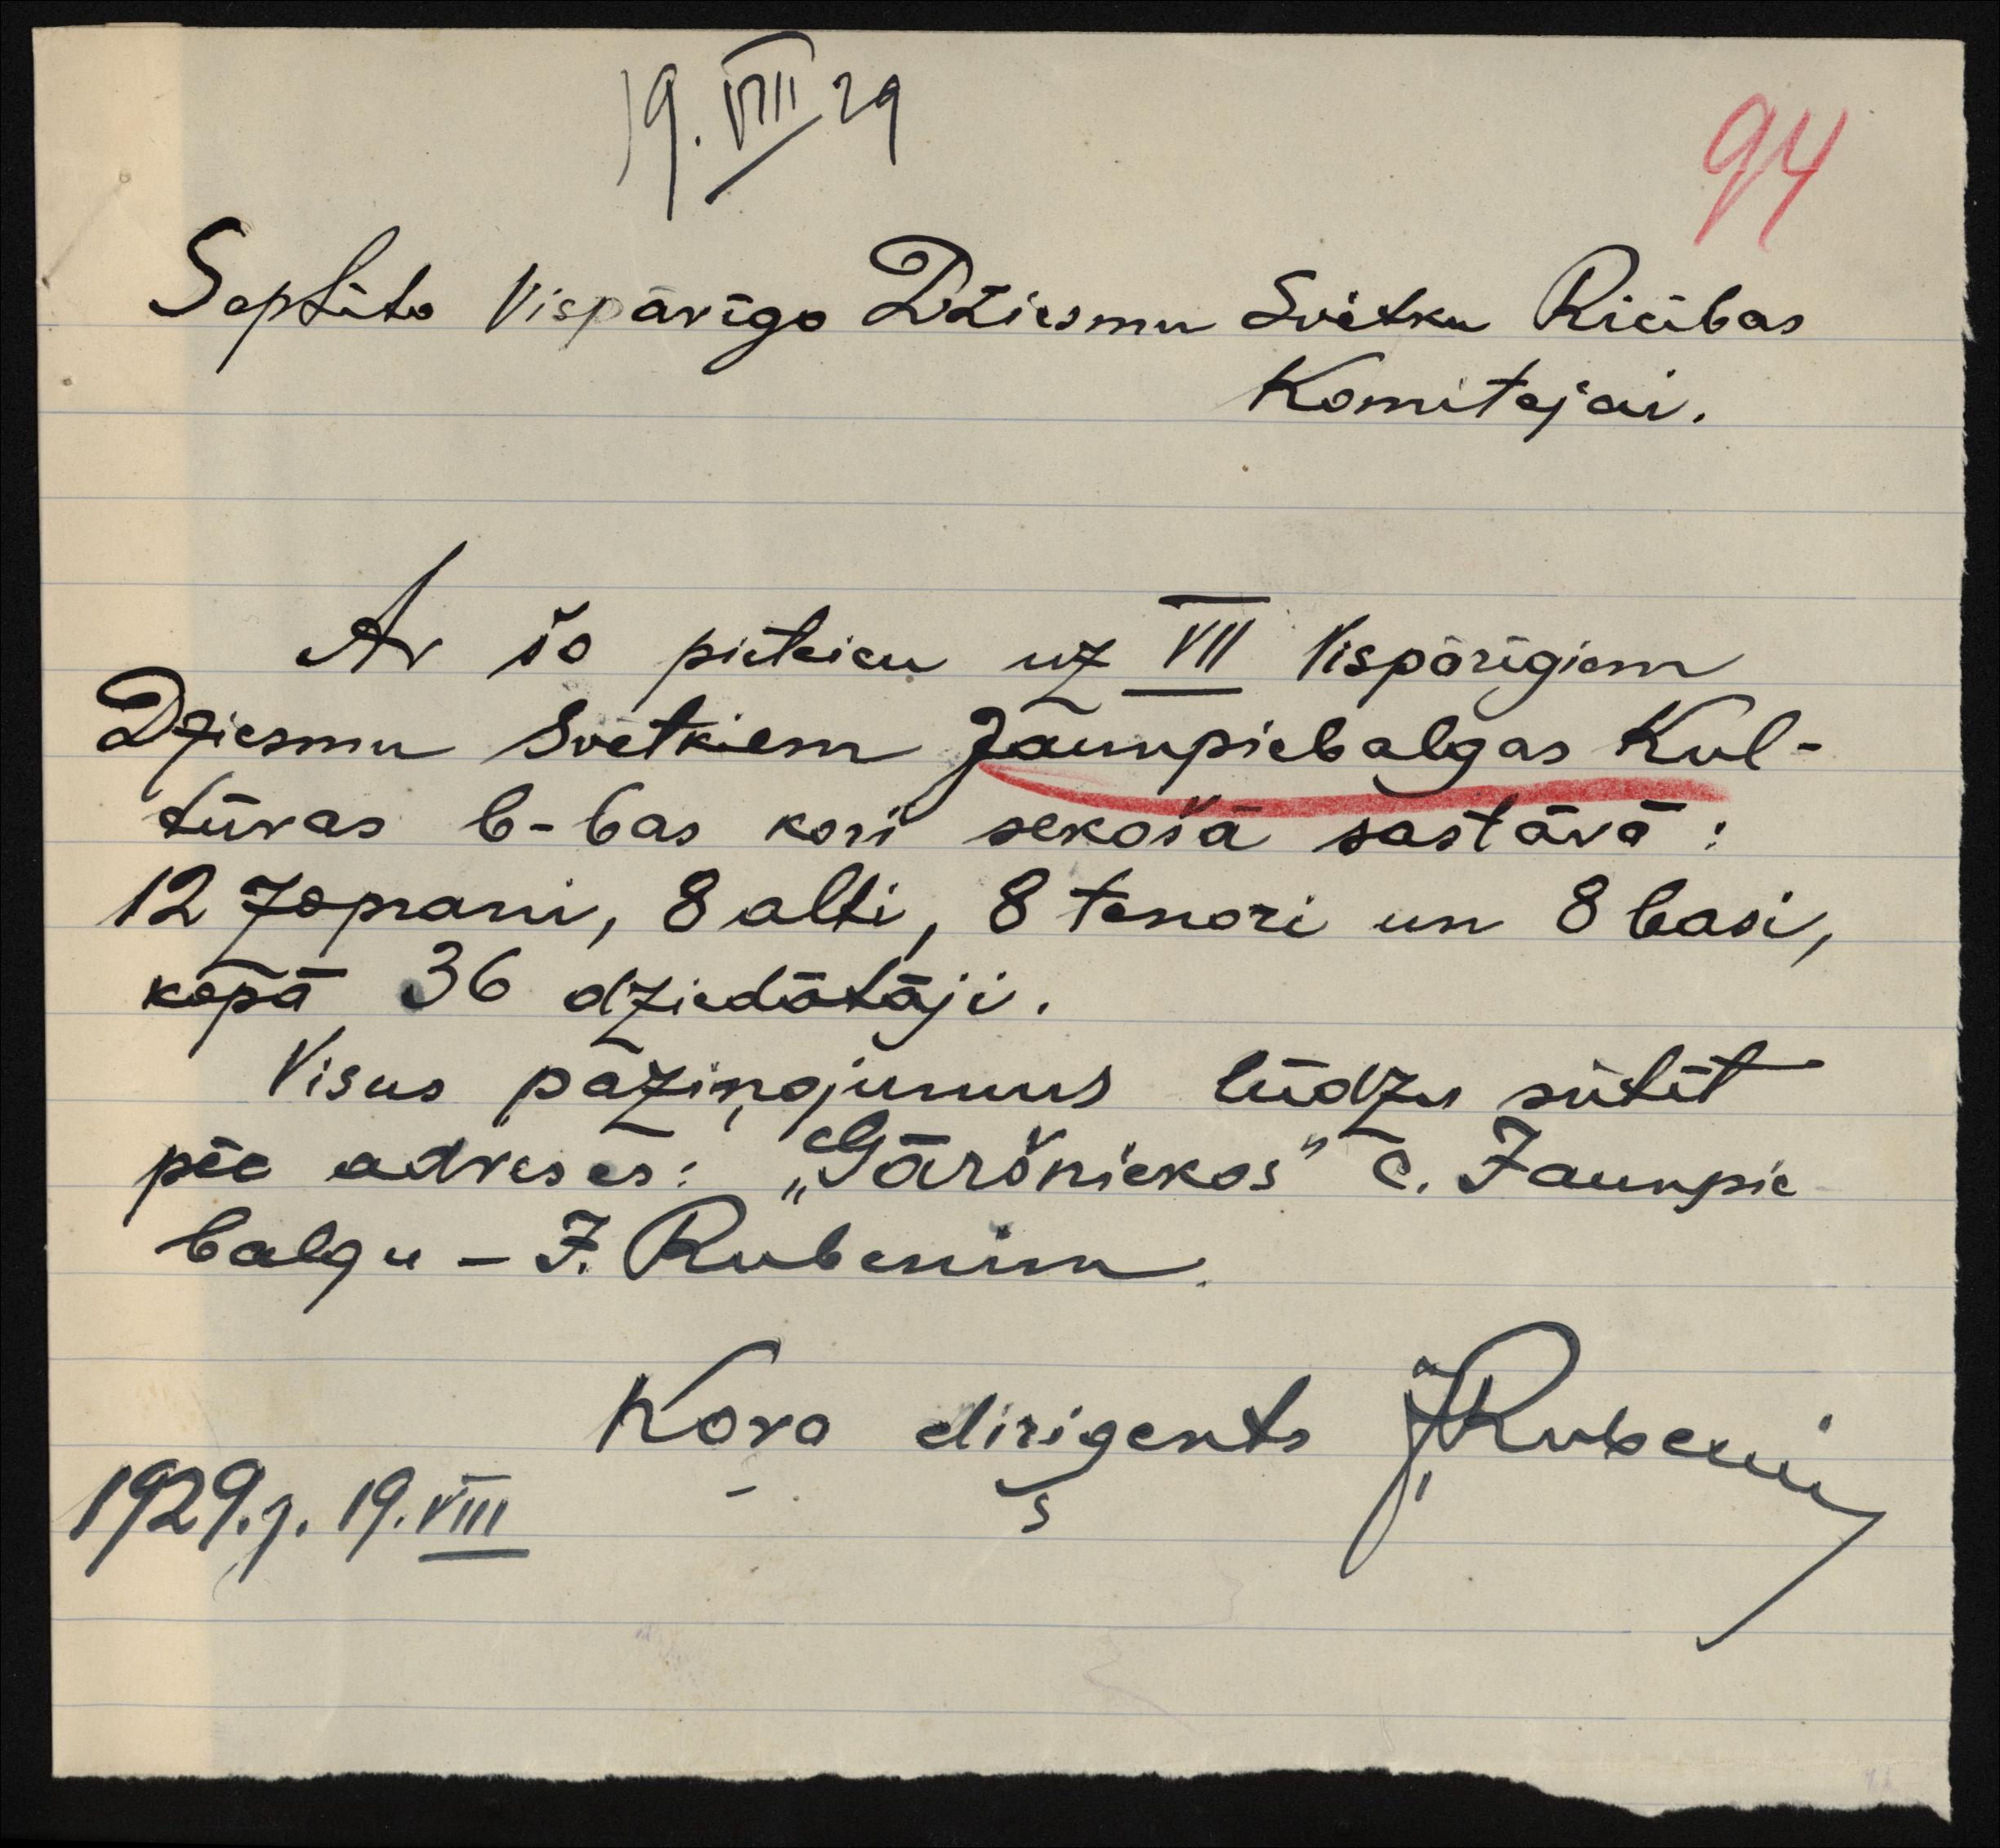 19. VIII 29
94
Septīto Vispārīgo Dziesmu Svētku Rīcības
Komitejai.
Ar šo pieteicu uz VII Vispārīgiem
Dziesmu Svētkiem Jaunpiebalgas Kul-
tūras b-bas kori sekošā sastāvā:
12 soprani, 8 alti, 8 tenori un 8 basi,
kopā 36 dziedātāji.
Visus paziņojumus lūdzu sūtīt
pēc adreses: „Gāršniekos" c. Jaunpie
balgu – J. Rubenim.
Kora dirigents JRubeni
1929.g. 19.VIII